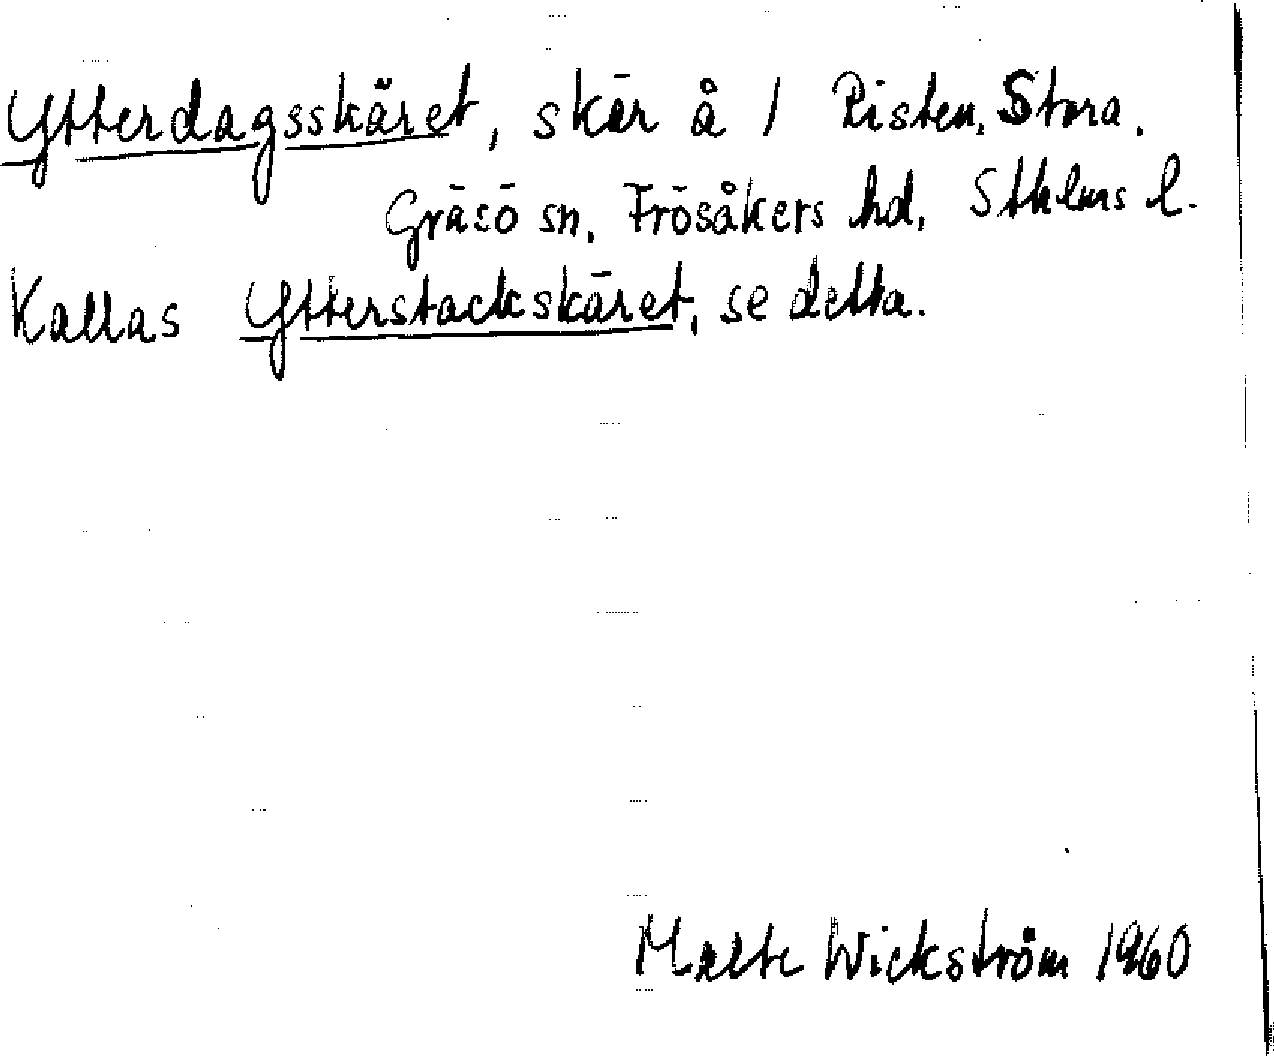 Ytterdagsskäret, skär å 1 Risten, Stora.
Gräsö sn, Frösåkers hd, Sthlms l.
Kallas Ytterstackskäret, se detta.
Malte Wickström 1960